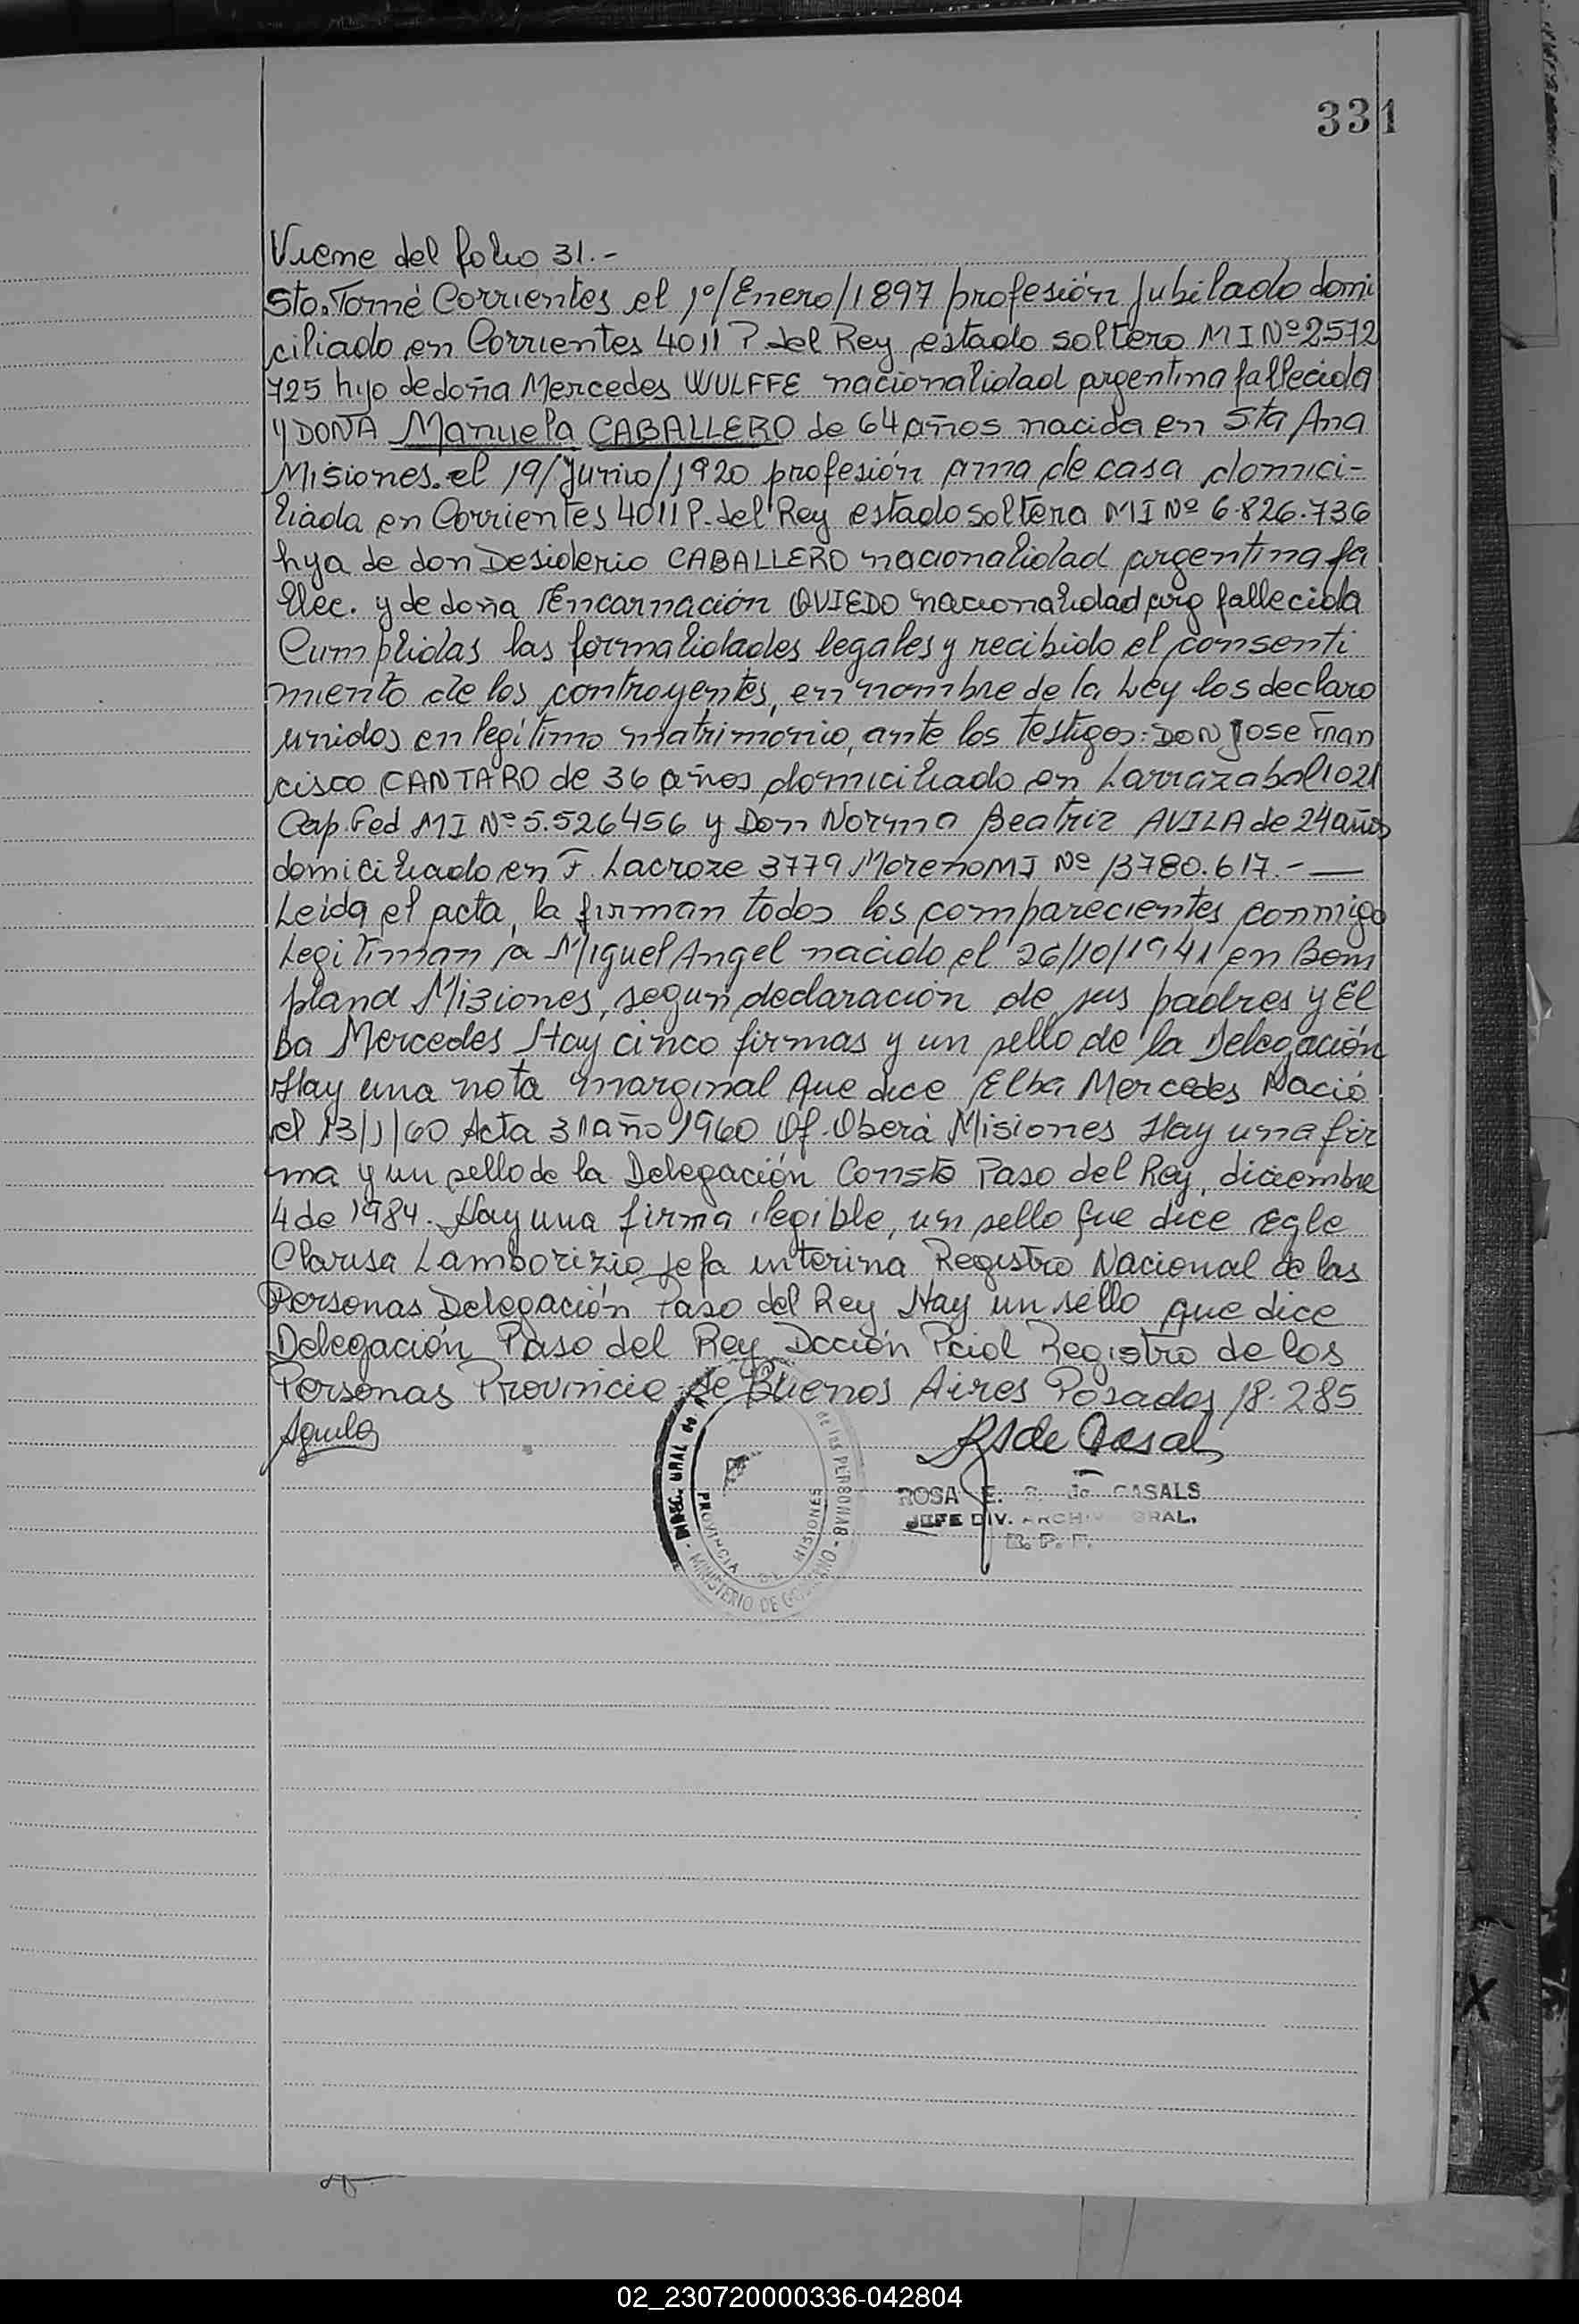 331
Viene del folio 31.-
Sto. Tomé Corrientes el 1º/Enero/1897 profesión Jubilado domi
ciliado en Corrientes 4011 P. del Rey estado soltero MI Nº 2572
725 hijo de doña Mercedes WULFFE nacionalidad argentina fallecida
Y DOÑA Manuela CABALLERO de 64 años nacida en Sta Ana
Misiones. el 19/Junio/1920 profesión ama de casa domici-
liada en Corrientes 4011 P. del Rey estado soltera MI Nº 6.826.736
hija de don Desiderio CABALLERO nacionalidad argentina fa
llec. y de doña Encarnación OVIEDO nacionalidad arg fallecida
Cumplidas las formalidades legales y recibido el consenti
miento de los contrayentes, en nombre de la Ley los declaro
unidos en legítimo matrimonio, ante los testigos: DON Jose Fran
cisco CANTARO de 36 años domiciliado en Larrazabal 1021
Cap. Fed MI Nº 5.526456 y Don Norma Beatriz AVILA de 24 años
domiciliado en F. Lacroze 3779 Moreno MI Nº 13780.617.-
Leida el acta, la firman todos los comparecientes conmigo
Legitiman a Miguel Angel nacido el 26/10/1941 en Bom
pland Misiones, segun declaración de sus padres y El
ba Mercedes Hay cinco firmas y un sello de la Delegación
Hay una nota marginal que dice Elba Mercedes Nació
el 13/1/60 Acta 31 año 1960 Of. Oberá Misiones Hay una fir
ma y un sello de la Delegación Conste Paso del Rey, diciembre
4 de 1984. Hay una firma ilegible, un sello que dice Egle
Clarisa Lamborizio Jefa interina Registro Nacional de las
Personas Delegación Paso del Rey Hay un sello que dice
Delegación Paso del Rey Dcción Pcial Registro de los
Personas Provincia de Buenos Aires Posadas 18.285
Aguila
RSde Casals
DIREC. GRAL de
de las PERSONAS
PROVINCIA
MISIONES
MINISTERIO DE GOBIERNO
ROSA E. S. de CASALS
JEFE DIV. ARCHIVO GRAL.
R. P. P.
X
02_230720000336-042804